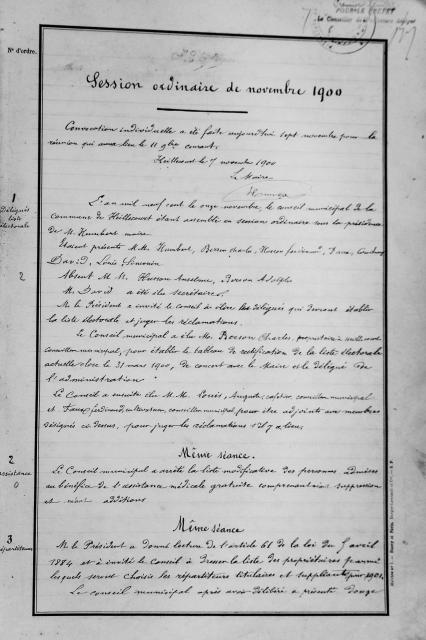 POUR LE PREFET
Le Conseiller de Préfecture délégué
N° d'ordre.
Session ordinaire de novembre 1900
Convocation individuelle a été faite aujourd'hui sept novembre pour la
réunion qui aura lieu le 11 9bre courant.
le 7 novembre 1900
Le Maire
1
Délégués
liste
électorale
L'an mil neuf cent le onze novembre, le conseil municipal de la
commune de étant assemblé en session ordinaire sous la présidence
de M. Humbert maire
Etaient présents M.M. Humbert, Charles,
David, Louis
2
Absent M.M. Husson Anselme, Adolphe
M. David a été élu secrétaire.
M. le Président a invité le conseil à élire les délégués qui devront établir
la liste électorale et juger les réclamations.
Le Conseil municipal a élu M. Charles, propriétaire à
conseiller municipal, pour établir le tableau de rectification de la liste électorale
actuelle close le 31 mars 1900, de concert avec le Maire et le délégué de
l'administration
Le Conseil a ensuite élu M.M. Louis, Auguste, conseiller municipal
et ferdinand, cultivateur, conseiller municipal pour être adjoints aux membres
désignés ci dessus, pour juger les réclamations s'il y a lieu.
2
assistance
0
Même séance.
Le Conseil municipal a arrêté la liste modificative des personnes admises
au bénéfice de l'assistance médicale gratuite comprenant suppression
et néant additions
3
répartiteurs
Même séance
M. le Président a donné lecture de l'article 61 de la loi du 5 avril
1884 et a invité le Conseil à dresser la liste des propriétaires parmi
lesquels seront choisis les répartiteurs titulaires et suppléants pour 1901.
Le conseil municipal après avoir délibéré a présenté douze